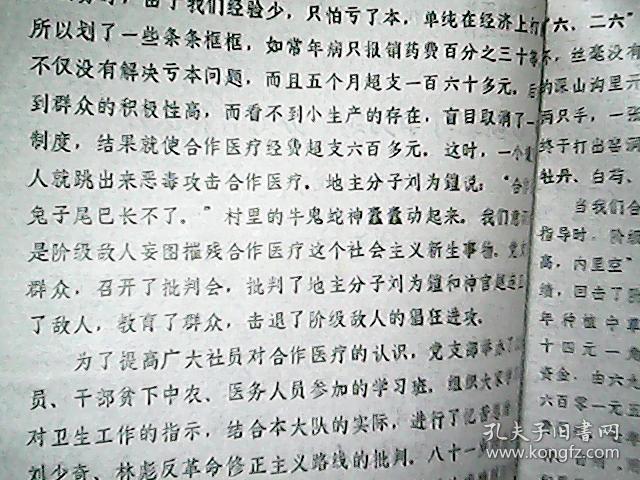 由于我们经验少，只怕亏了本，单纯在经济上打
所以划了一些条条框框，如常年病只报销药费百分之三十
不仅没有解决亏本问题，而且五个月超支一百六十多元。后
到群众的积极性高，而看不到小生产的存在，盲目取消了一
制度，结果就使合作医疗经费超支六百多元。这时，一个
人就跳出来恶毒攻击合作医疗。地主分子刘为镗说：“合作
兔子尾巴长不了。”村里的牛鬼蛇神蠢蠢动起来。我们意识
是阶级敌人妄图摧残合作医疗这个社会主义新生事物。党支
群众，召开了批判会，批判了地主分子刘为镗和神官赵
了敌人，教育了群众，击退了阶级敌人的猖狂进攻。
为了提高广大社员对合作医疗的认识，党支部举办了
员、干部贫下中农、医务人员参加的学习班。组织大家学
对卫生工作的指示，结合本大队的实际，进行了忆苦思
刘少奇、林彪反革命修正主义路线的批判。八十一
“六、二六”
不，丝毫没有
的深山沟里元
两只手，一张
终于打出窑洞
牡丹、白芍、
当我们合
指导时，阶级
高，内里空”
绩，回击了阶
年种植中草
十四元一
资金。由六
六百零一元
孔夫子旧书网
www.kongfz.com